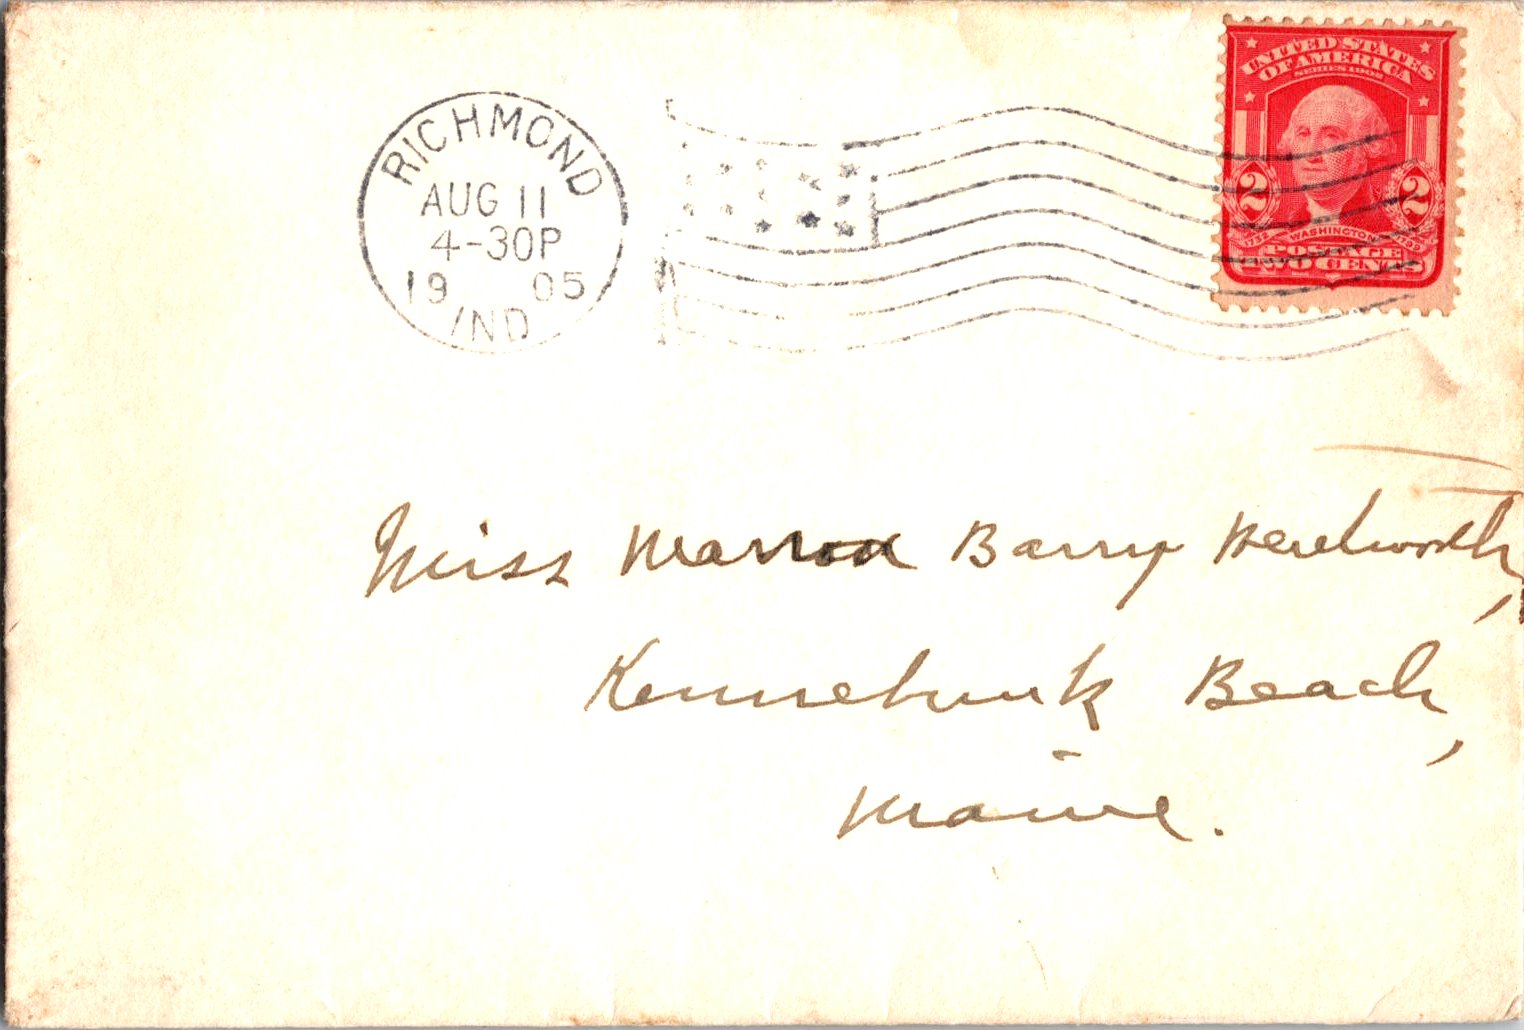 RICHMOND
AUG 11
4-30P
19 05
IND
UNITED STATES
OF AMERICA
SERIES 1902
2 2
1732 WASHINGTON 1799
POSTAGE
TWO CENTS
Miss Barry Wentworth,
Kennebunk Beach,
Maine.